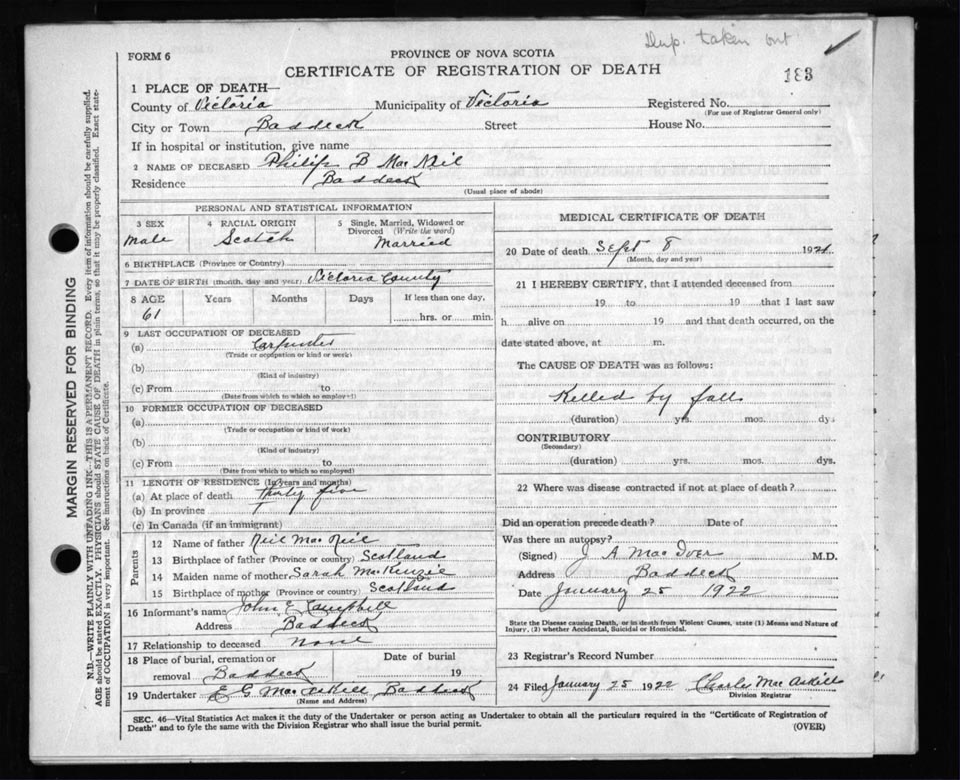 Dup. taken out
FORM 6
PROVINCE OF NOVA SCOTIA
CERTIFICATE OF REGISTRATION OF DEATH
183
1 PLACE OF DEATH—
County of Victoria Municipality of Victoria Registered No.
(For use of Registrar General only)
City or Town Baddeck Street House No.
If in hospital or institution, give name
2 NAME OF DECEASED Philip B MacNeil
Residence Baddeck
(Usual place of abode)
PERSONAL AND STATISTICAL INFORMATION
3 SEX 4 RACIAL ORIGIN 5 Single, Married, Widowed or
Divorced (Write the word)
Male Scotch Married
6 BIRTHPLACE (Province or Country)
7 DATE OF BIRTH (month, day and year) Victoria County
8 AGE Years Months Days If less than one day,
61 hrs. or min.
9 LAST OCCUPATION OF DECEASED
(a) Carpenter
(Trade or occupation or kind or work)
(b)
(Kind of industry)
(c) From to
(Date from which to which so employed)
10 FORMER OCCUPATION OF DECEASED
(a)
(Trade or occupation or kind of work)
(b)
(Kind of industry)
(c) From to
(Date from which to which so employed)
11 LENGTH OF RESIDENCE (In years and months)
(a) At place of death Thirty five
(b) In province
(c) In Canada (if an immigrant)
Parents
12 Name of father Neil MacNeil
13 Birthplace of father (Province or country) Scotland
14 Maiden name of mother Sarah MacKenzie
15 Birthplace of mother (Province or country) Scotland
16 Informant's name John E Campbell
Address Baddeck
17 Relationship to deceased None
18 Place of burial, cremation or Date of burial
removal Baddeck 19
19 Undertaker E G MacAskill Baddeck
(Name and Address)
MEDICAL CERTIFICATE OF DEATH
20 Date of death Sept 8 1921
(Month, day and year)
21 I HEREBY CERTIFY, that I attended deceased from
19 to 19 that I last saw
h alive on 19 and that death occurred, on the
date stated above, at m.
The CAUSE OF DEATH was as follows:
Killed by fall
(duration) yrs. mos. dys.
CONTRIBUTORY
(Secondary)
(duration) yrs. mos. dys.
22 Where was disease contracted if not at place of death?
Did an operation precede death? Date of
Was there an autopsy?
(Signed) J A MacIver M.D.
Address Baddeck
Date January 25 1922
State the Disease causing Death, or in death from Violent Causes, state (1) Means and Nature of
Injury, (2) whether Accidental, Suicidal or Homicidal.
23 Registrar's Record Number
24 Filed January 25 1922 Charles MacAskill
Division Registrar
SEC. 46—Vital Statistics Act makes it the duty of the Undertaker or person acting as Undertaker to obtain all the particulars required in the "Certificate of Registration of
Death" and to fyle the same with the Division Registrar who shall issue the burial permit. (OVER)
MARGIN RESERVED FOR BINDING
N.B.—WRITE PLAINLY WITH UNFADING INK—THIS IS A PERMANENT RECORD. Every item of information should be carefully supplied.
AGE should be stated EXACTLY. PHYSICIANS should STATE CAUSE OF DEATH in plain terms, so that it may be properly classified. Exact state-
ment of OCCUPATION is very important. See instructions on back of Certificate.